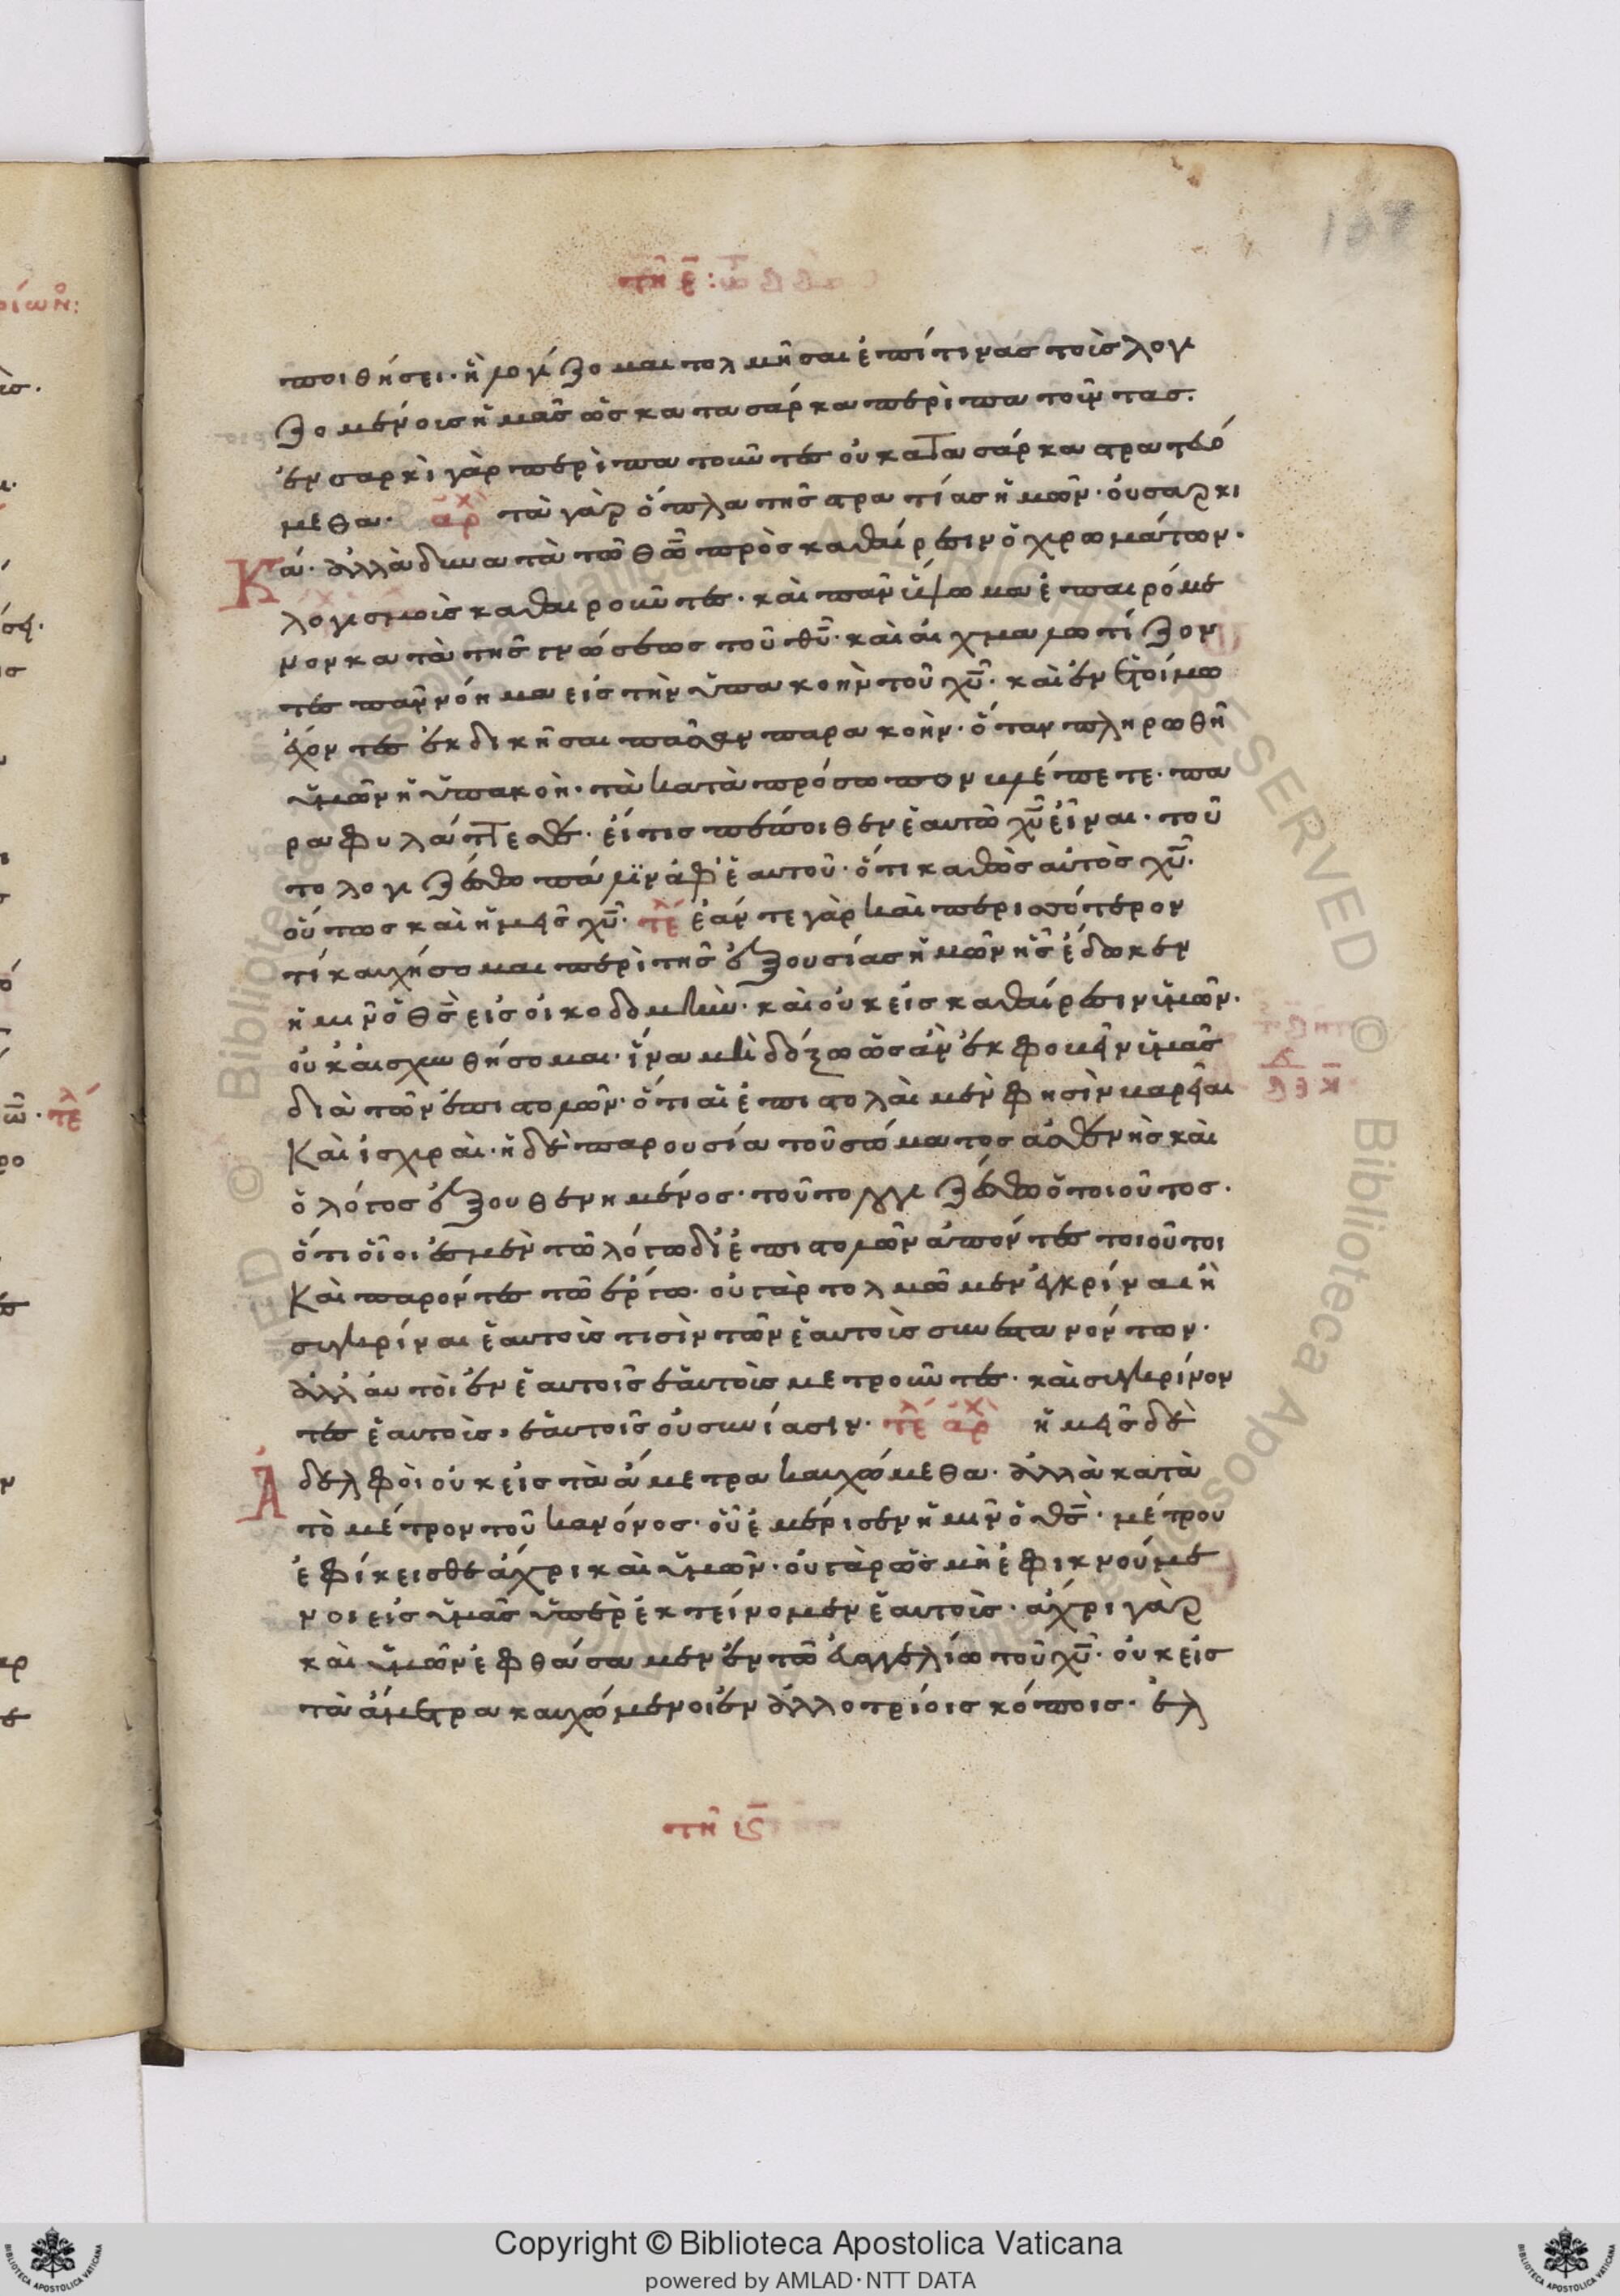 τῆ ε̄:
ποιθήσει· ἧ λογίζομαι τολμῆσαι ἐπί τινας τοὺς λογι
ζομένους ἡμᾶς ὡς κατα σάρκα περὶπατοῦντας.
ἐν σαρκὶ γὰρ περὶπατοῦντες οὐ κατα σάρκα στρατευό
μεθα· ἀρχ τὰ γὰρ ὅπλα τῆς στρατίας ἡμῶν· οὐ σαρκι
κά· ἀλλὰ δυνατὰ τῶ θω̄ πρὸς καθαίρεσιν ὀχυρωμάτων·
λογισμοὺς καθαιροῦντες· καὶ πᾶν ὕψωμα ἐπαιρόμε
νον κατὰ τῆς γνώσεως τοῦ θῡ· καὶ αἰχμαλωτίζον
τες πᾶν νόημα εἰς τὴν ὑπακοὴν τοῦ χῡ· καὶ ἐν ἑτοίμω
ἔχοντες ἐκδικῆσαι πᾶσαν παρακοὴν· ὅταν πληρωθῆ
ὑμῶν ἡ ὑπακοὴ· τὰ κατὰ πρόσωπον βλέπετε· πα
ραφυλάττεσθε· εἴ τις πέποιθεν ἑαυτῶ χῡ εἶναι· τοῦ
το λογιζέσθω πάλϊν ἀφ ἑαυτοῦ· ὅτι καθὼς αὐτὸς χῡ·
οὕτως καὶ ἡμεῖς χῡ· τέλ ἐάν τε γὰρ καὶ περισσότερον
τί καυχήσομαι περὶ τῆς ἐξουσίας ἡμῶν ἧς ἔδωκεν
ἡμῖν ὁ θς̄ εἰς οἰκοδομὴν· καὶ οὐκ εἰς καθαίρεσιν ὑμῶν·
οὐκ αἰσχυνθήσομαι· ἵνα μὴ δόξω ὡς ἂν ἐκφοβεῖν ὑμᾶς
διὰ τῶν ἐπιστολῶν· ὅτι αἱ ἐπιστολαὶ μὲν φησὶν βαρεῖαι
καὶ ἰσχυραὶ· ἡ δὲ παρουσία τοῦ σώματος ἀσθενὴς καὶ
ὁ λόγος ἐξουθενημένος· τοῦτο λογιζέσθω ὁ τοιοῦτος·
ὅτι οἷοι ἐσμὲν τῶ λόγω δι ἐπιστολῶν ἀπόντες τοιοῦτοι
καὶ παρόντες τῶ ἔργω· οὐ γὰρ τολμῶμεν ἐγκρίναι ἢ
συγκρίναι ἑαυτοὺς τισὶν τῶν ἑαυτοὺς συνιστανόντων·
ἀλλ αὐτοὶ ἐν ἑαυτοῖς ἑαυτοὺς μετροῦντες· καὶ συγκρίνον
τες ἑαυτοὺς, ἑαυτοῖς οὐ συνίασιν· τέλ ἀρχ ἡμεῖς δὲ
Ἀδελφοὶ οὐκ εἰς τὰ ἄμετρα καυχώμεθα· ἀλλὰ κατὰ
τὸ μέτρον τοῦ κανόνος· οὗ ἐμέρισεν ἡμῖν ὁ θς̄· μέτρου
ἐφίκεισθε ἄχρι καὶ ὑμῶν· οὐ γὰρ ὡς μὴ ἐφικνούμε
νοι εἰς ὑμᾶς ὑπὲρ ἐκτείνομεν ἑαυτοὺς· ἄχρι γὰρ
καὶ ὑμῶν ἐφθάσαμεν ἐν τῶ εὐαγγελίω τοῦ χῡ· οὐκ εἰς
τὰ ἄμετρα καυχώμενοι ἐν ἀλλοτρίοις κόποις· ἐλ
τῆ ις̄
Copyright © Biblioteca Apostolica Vaticana
powered by AMLAD·NTT DATA